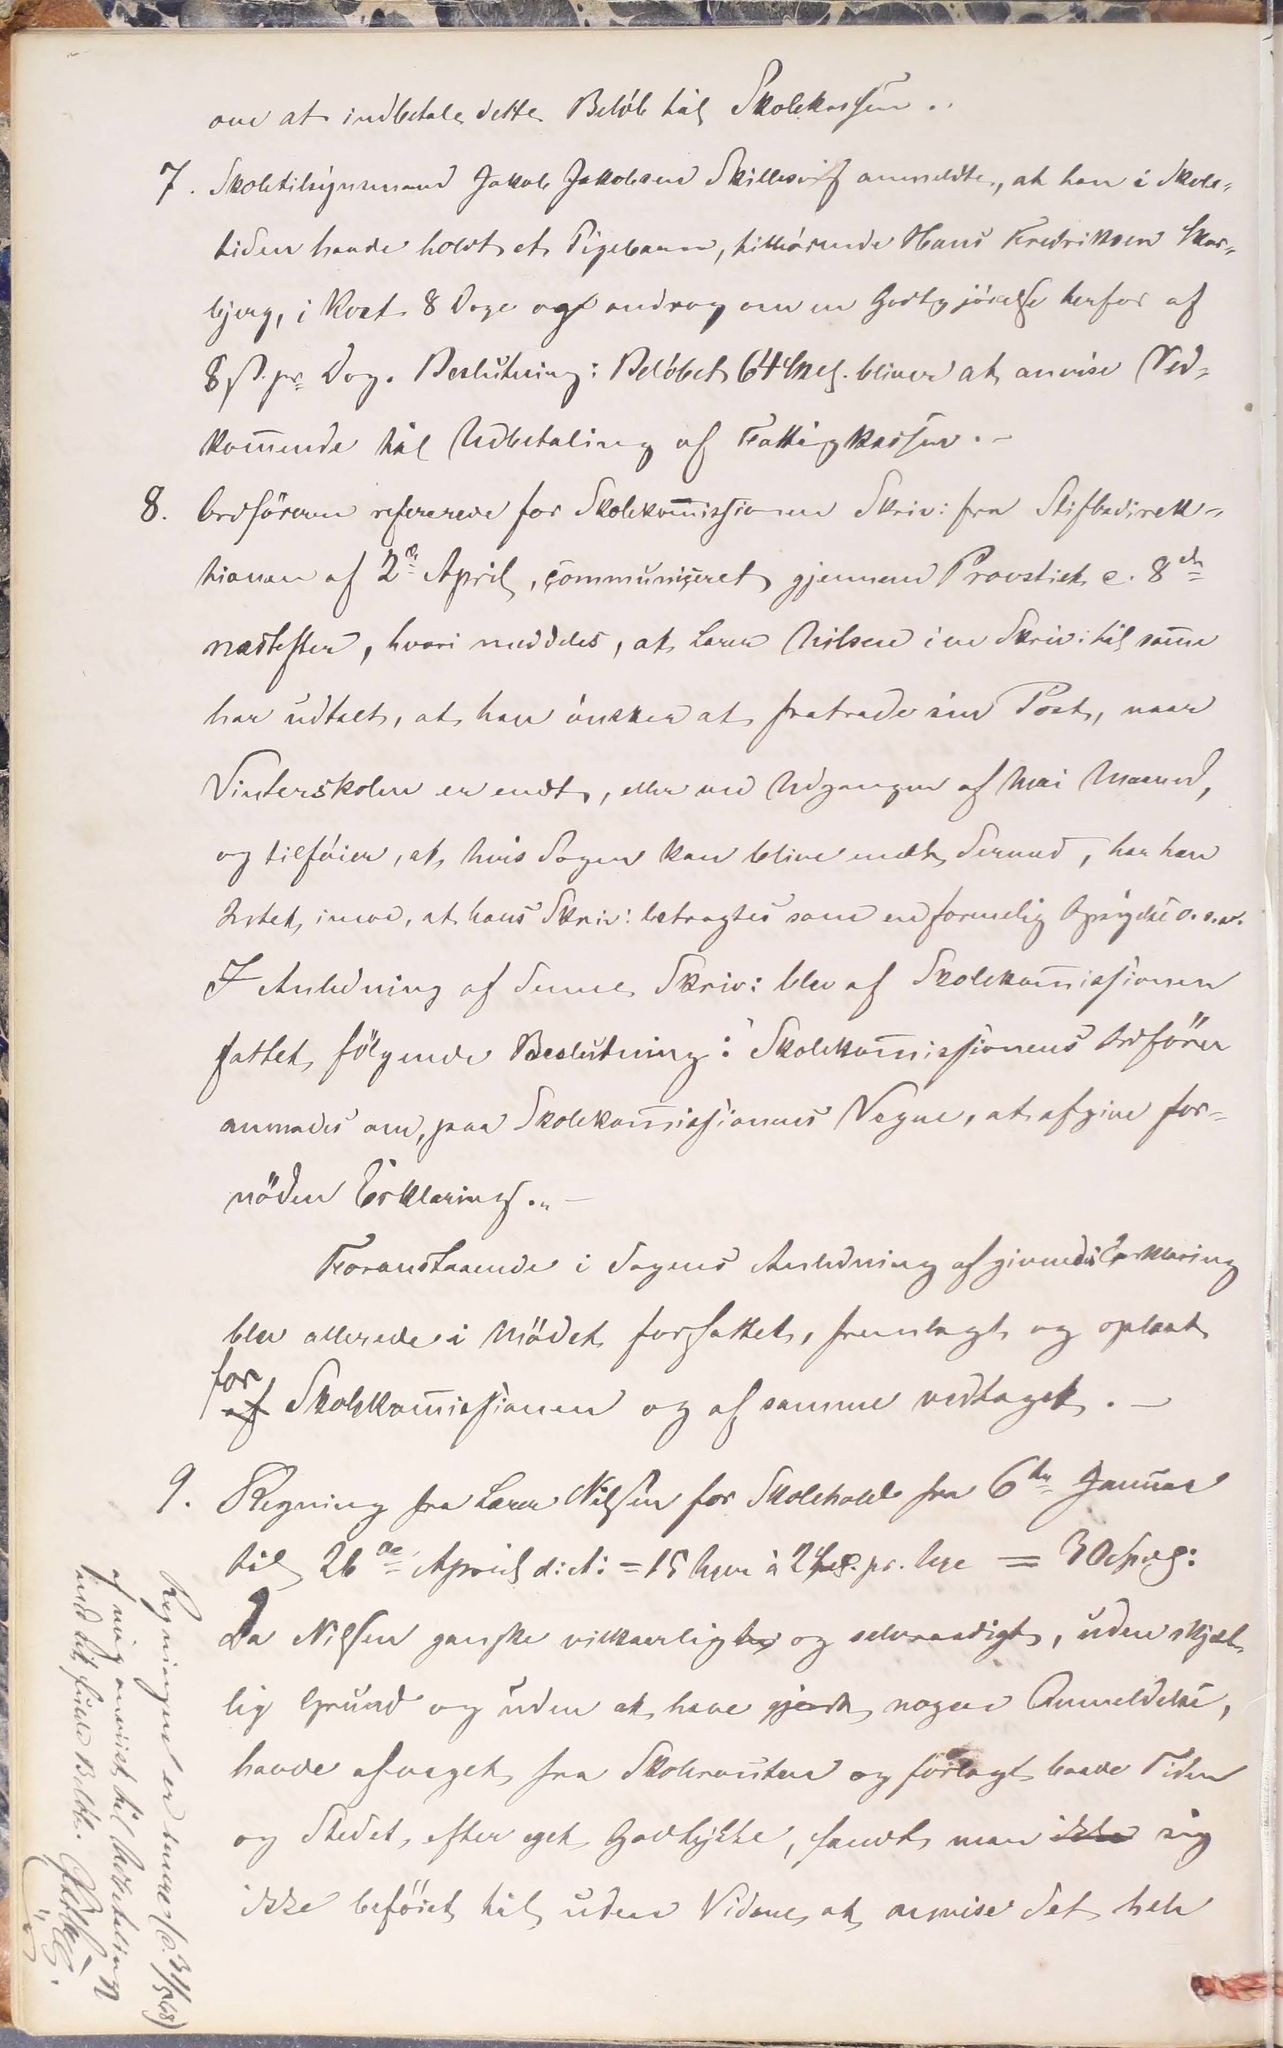 om at indbetale dette Beløb til Skolekassen.
7. Skoletilsynsmand Jakob Jakobsen anmeldte, at han i Skole-
tiden havde holdt et Pigebarn, tilhørende Hans Fredriksen Skar-
bjerg, i Kost 8 Dage og androg om en Godtgjørelse herfor af
8 ß. pr. Dag. Beslutning: Beløbet 64 bliver at anvise Ved-
kommende til Udbetaling af Fattigkassen.-
8. Ordføreren refererede for Skolekommissionen Skriv: fra Stiftsdirek-
tionen af 2de April, communiceret gjennem Provstiet e. 8de
næstefter, hvori meddeles, at Lærer Nilsen i en Skriv: til samme
har udtalt, at han ønsker at fratræde sin Post, naar
Vinterskolen er endt, eller ved Udgangen af Mai Maaned,
og tilføier, at hvis Sagen kan blive endt dermed, har han
Intet imod, at hans Skriv: betragtes som en formelig Opsigelse o.s.v.
I Anledning af denne Skriv: blev af Skolekommissionen
fattet følgende Beslutning: Skolekommissionens Ordfører
anmodes om, paa Skolekommissionens Vegne, at afgive for-
nöden Erklæring.-
Foranstaaende i Sagens Anledning afgivende Erklæring
blev allerede i Mødet forfattet, fremlagt og oplæst
for
af Skolekommissionen og af samme vedtaget.-
9. Regning fra Lærer Nilsen for Skolehold fra 6te Januar
til 26de April d:e: = 15 Uger à 2 pr. Uge = 30 Spd:
Da Nilsen ganske vilkaarligt og selvraadigt, uden skjæl-
lig Grund og uden at have gjort nogen Anmeldelse,
havde afveget fra Skoleruten og forlagt baade Tiden
og Stedet, efter eget Godtykke, fandt man ikke sig
ikke beföiet til, uden Videre, at anvise det hele
Regningen er senere (d. 31/5 68)
af mig anvist til Udbetaling
med det fulde Beløb.